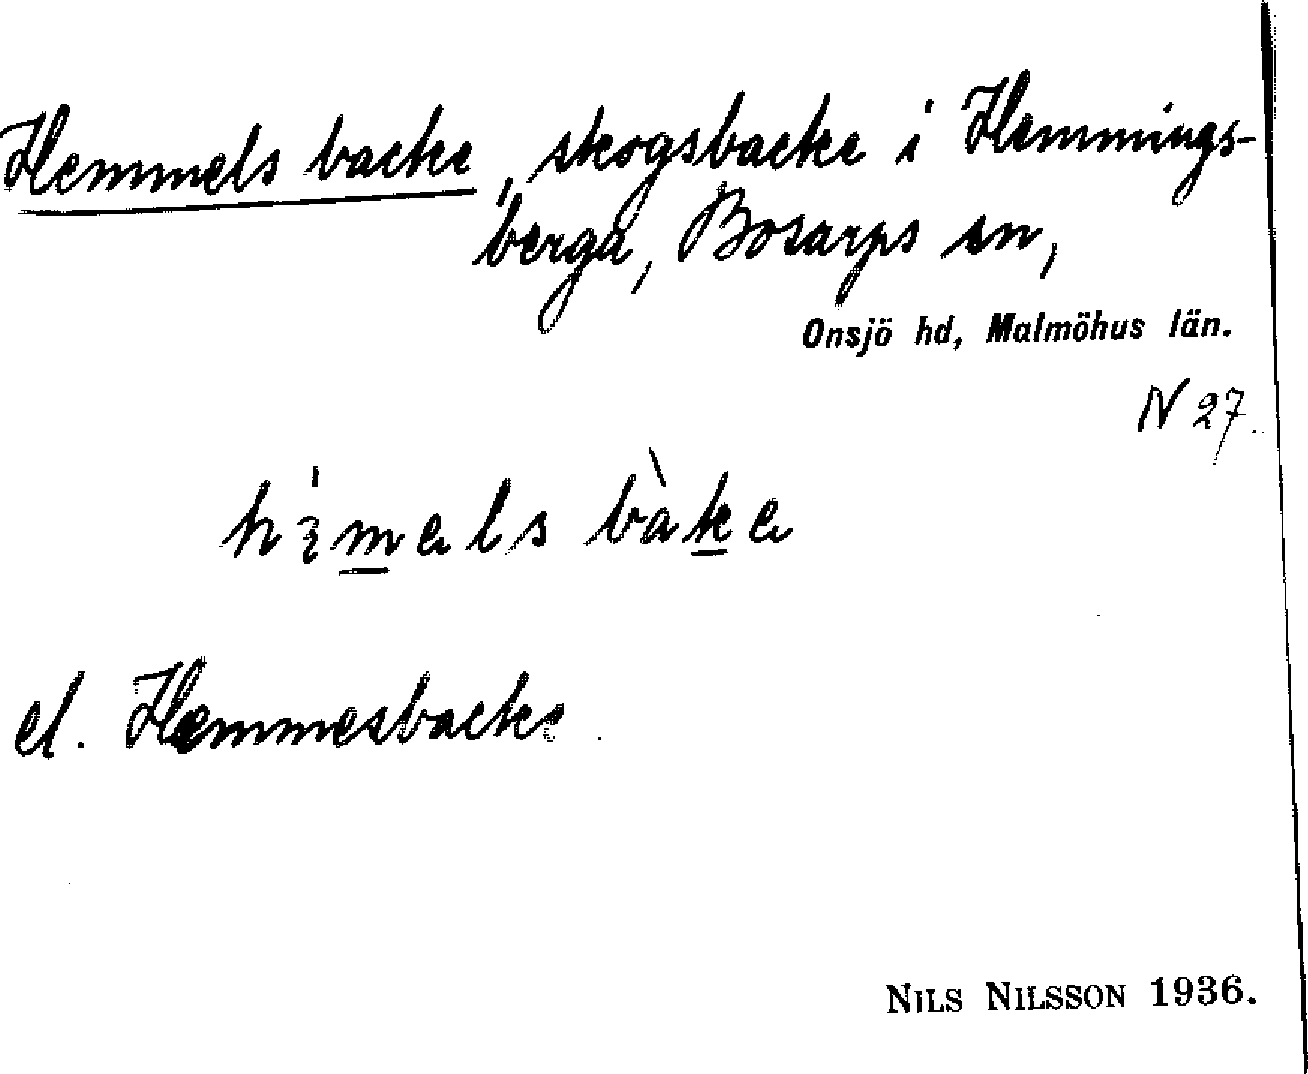 Hemmels backe, skogsbacke i Hemmings-
berga, Bosarps sn,
Onsjö hd, Malmöhus län.
N 27.
el. Hemmesbacke.
NILS NILSSON 1936.